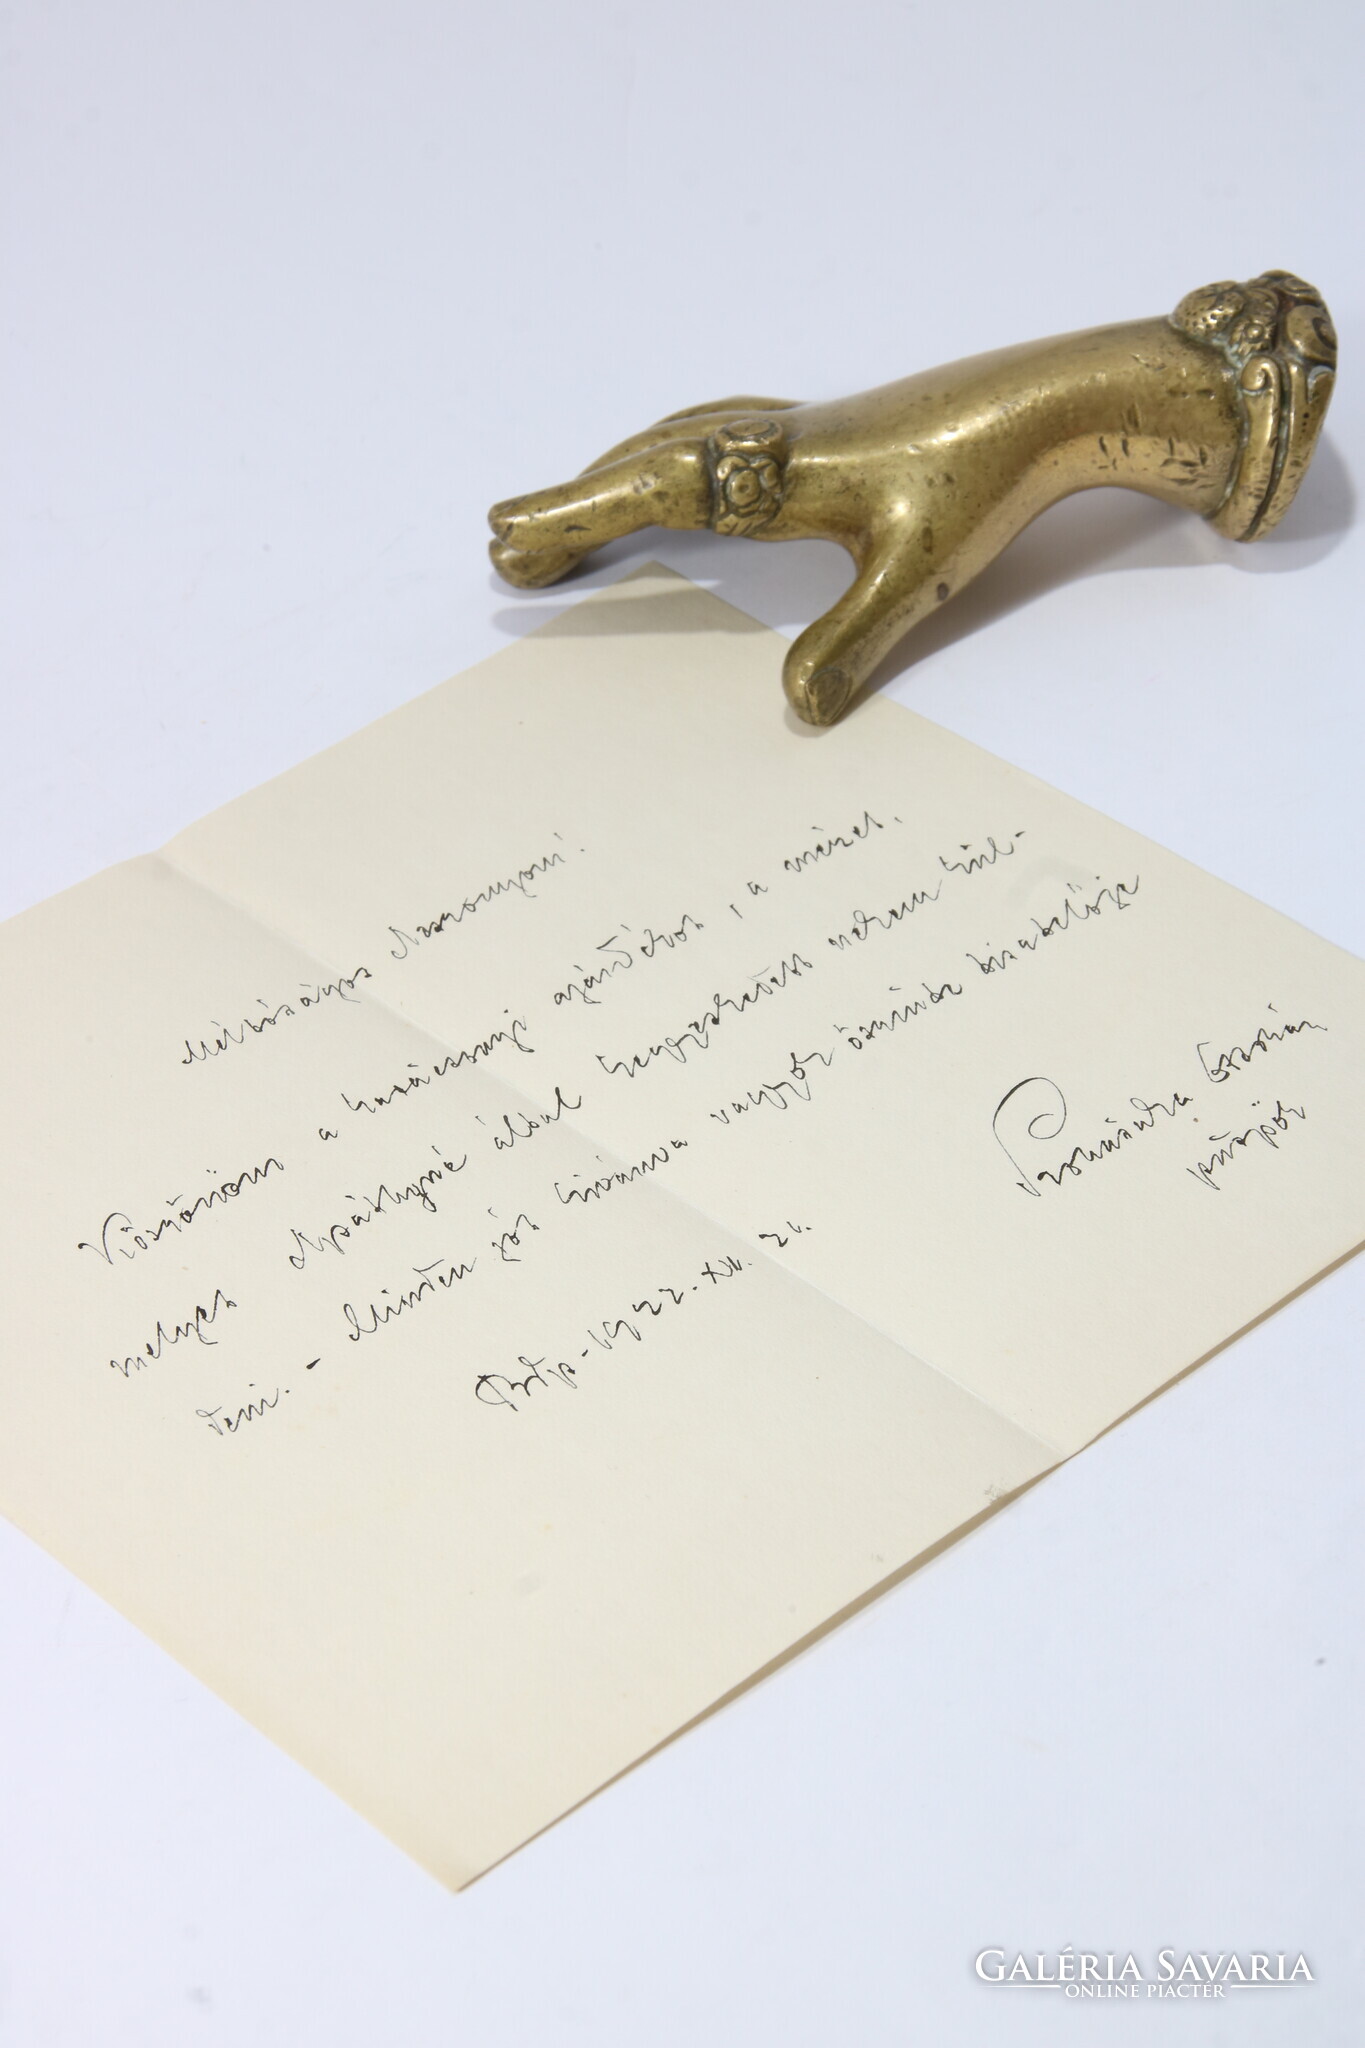 Méltóságos Asszonyom!
Köszönöm a karácsonyi ajándékot, a mézet,
melyet Apátlyné által kegyeskedett nekem kül-
deni. - Minden jót kívánva vagyok őszinte tisztelője
Prohászka Ottokár
püspök
Bdp - 1922. XII. 2
GALÉRIA SAVARIA
ONLINE PIACTÉR